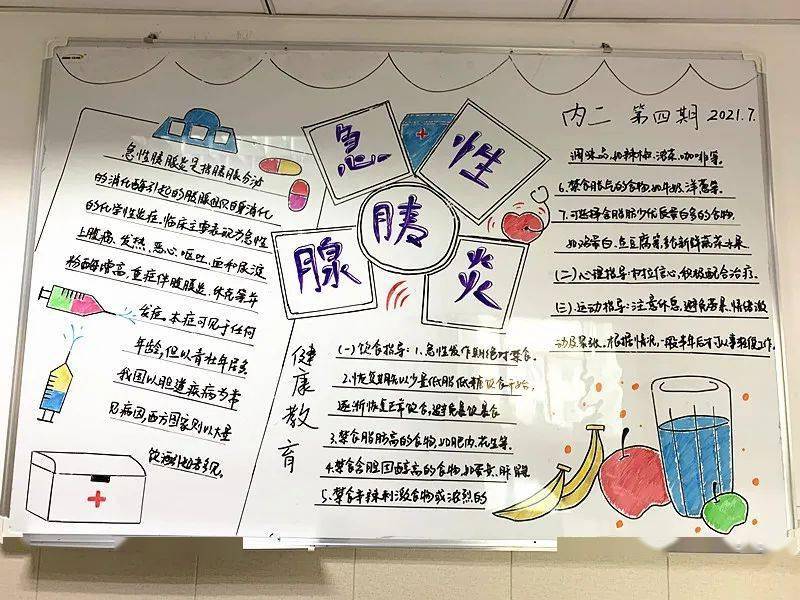 急性
胰
腺炎
内二 第四期 2021.7.
急性胰腺炎是指胰腺分泌
的消化酶引起的胰腺组织自身消化
的化学性炎症.临床主要表现为急性
上腹痛、发热、恶心、呕吐、血和尿淀
粉酶增高,重症伴腹膜炎、休克等并
发症.本症可见于任何
年龄,但以青壮年居多
我国以胆道疾病为常
见病因,西方国家则以大量
饮酒引起者多见.
健康教育
(一)饮食指导:1.急性发作期绝对禁食.
2.恢复期先以少量低脂低糖饮食开始,
逐渐恢复正常饮食,避免暴饮暴食
3.禁食脂肪高的食物,如肥肉、花生等.
4.禁食含胆固醇高的食物,如蛋黄、肝
5.禁食辛辣刺激食物或浓烈的
调味品,如辣椒、浓茶、咖啡等.
6.禁食胀气的食物,如牛奶、洋葱等.
7.可选择含脂肪少优质蛋白多的食物,
如鸡蛋白、鱼豆腐等,给新鲜蔬菜水果
(二)心理指导:树立信心,积极配合治疗.
(三)运动指导:注意休息,避免劳累、情绪激
动及紧张.根据情况,一般半年后才可从事轻便工作.